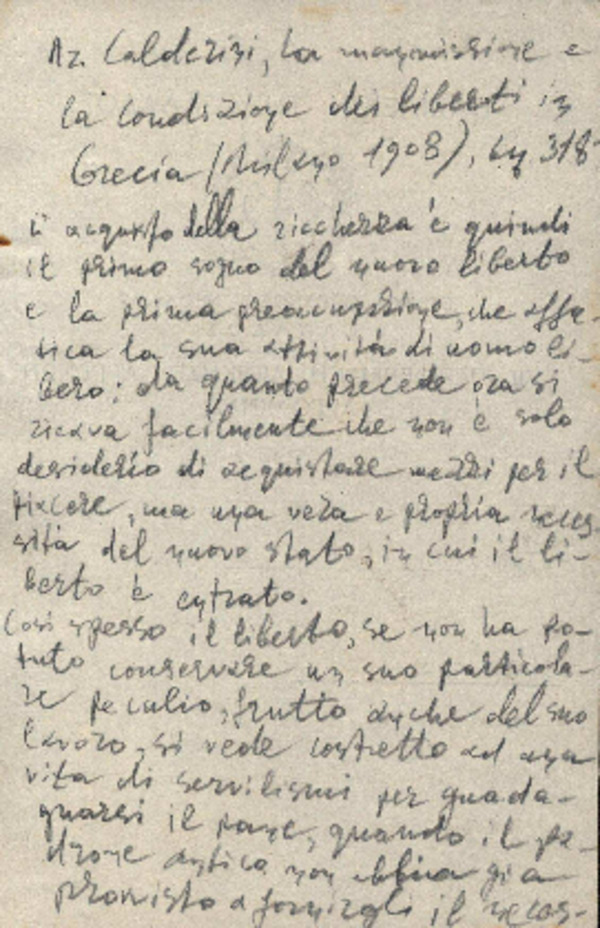 Az. Calderini, La manomissione e
la condizione dei liberti in
Grecia (Milano 1908), 318
L'acquisto della ricchezza è quindi
il primo sogno del nuovo liberto
e la prima preoccupazione, che affa-
tica la sua attività di uomo li-
bero: da quanto precede ora si
ricava facilmente che non è solo
desiderio di acquistare mezzi per il
piacere, ma una vera e propria neces-
sità del nuovo stato, in cui il li-
berto è entrato.
Così spesso il liberto, se non ha po-
tuto conservare un suo particola-
re peculio, frutto anche del suo
lavoro, si vede costretto ad una
vita di servilismi per guada-
gnarsi il pane, quando il pa-
drone antico non abbia già
provvisto a fornirgli il neces-